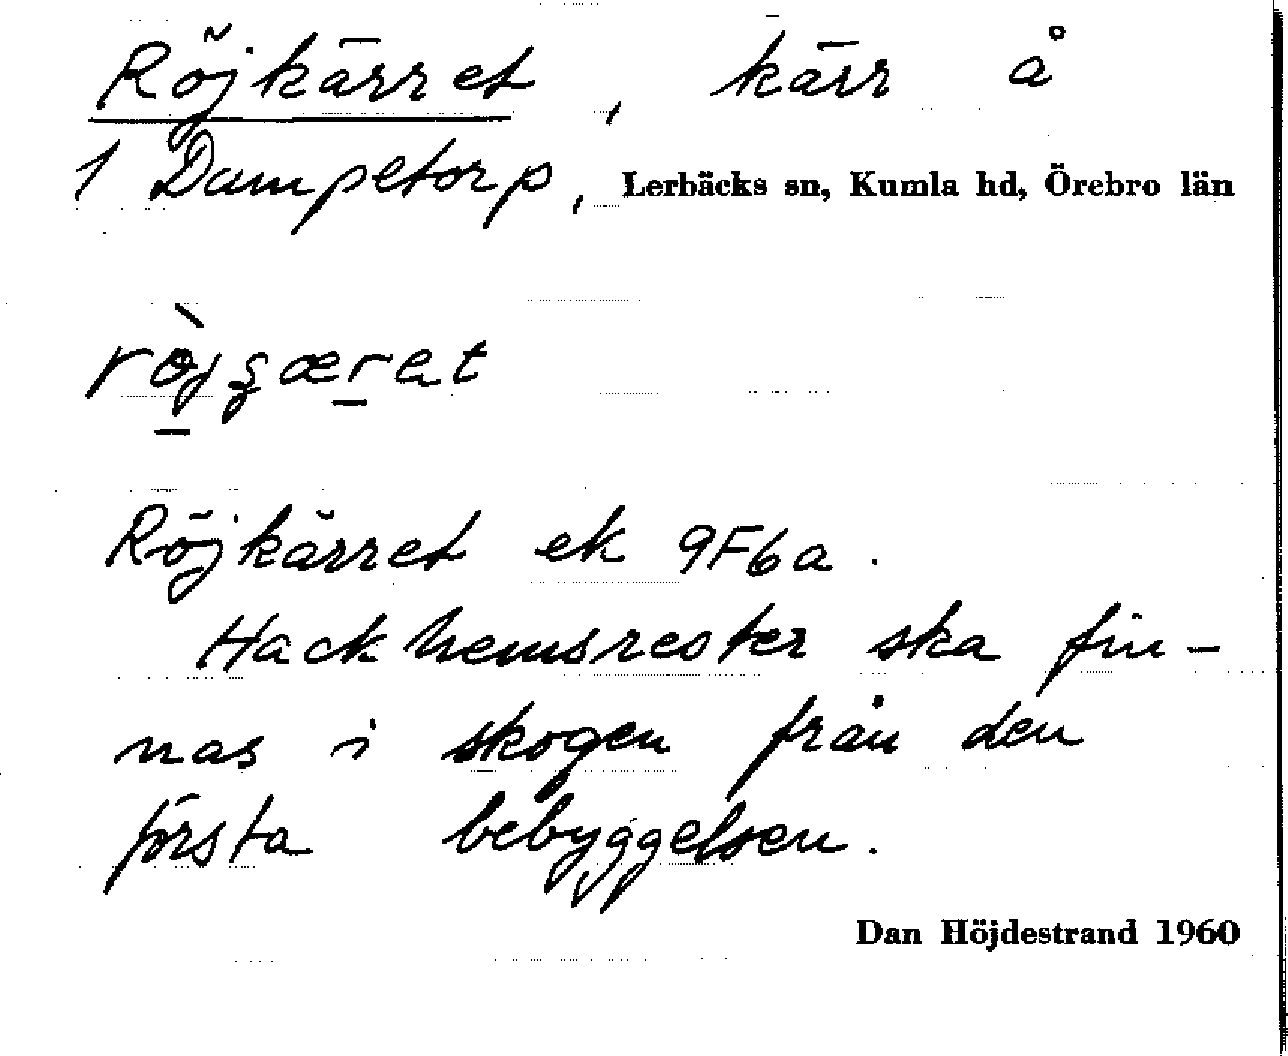 Röjkärret, kärr å
1 Dampetorp, Lerbäcks sn, Kumla hd, Örebro län
Röjkärret ek 9F6a.
Hackhemsrester ska fin-
nas i skogen från den
första bebyggelsen.
Dan Höjdestrand 1960